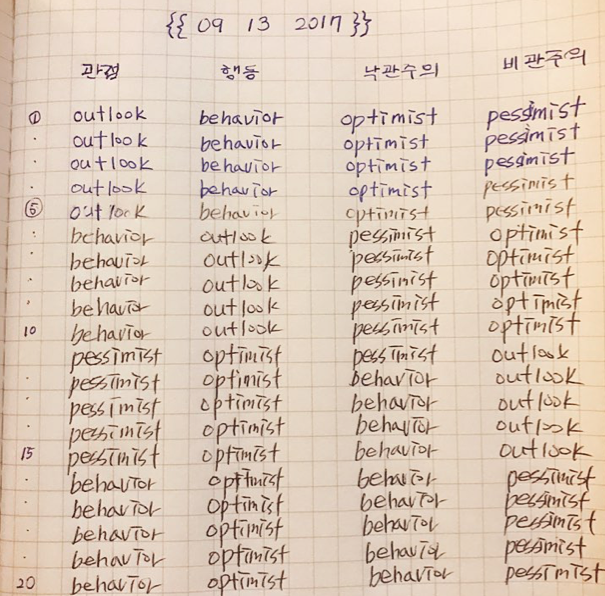 {{ 09 13 2017 }}
관점 행동 낙관주의 비관주의
① outlook behavior optimist pessimist
· outlook behavior optimist pessimist
· outlook behavior optimist pessimist
· outlook behavior optimist pessimist
⑤ outlook behavior optimist pessimist
· behavior outlook pessimist optimist
· behavior outlook pessimist optimist
· behavior outlook pessimist optimist
· behavior outlook pessimist optimist
10 behavior outlook pessimist optimist
· pessimist optimist pessimist outlook
· pessimist optimist behavior outlook
· pessimist optimist behavior outlook
· pessimist optimist behavior outlook
15 pessimist optimist behavior outlook
· behavior optimist behavior pessimist
· behavior optimist behavior pessimist
· behavior optimist behavior pessimist
· behavior optimist behavior pessimist
20 behavior optimist behavior pessimist